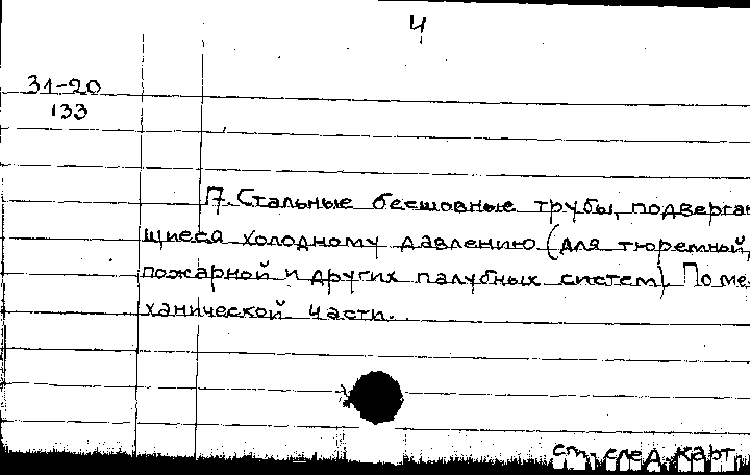 4
31-20
133
П. Стальные бесшовные трубы, подверга
щиеся холодному давлению (для тюремной,
пожарной и других палубных систем). По ме
ханической части.
см. след. карт.